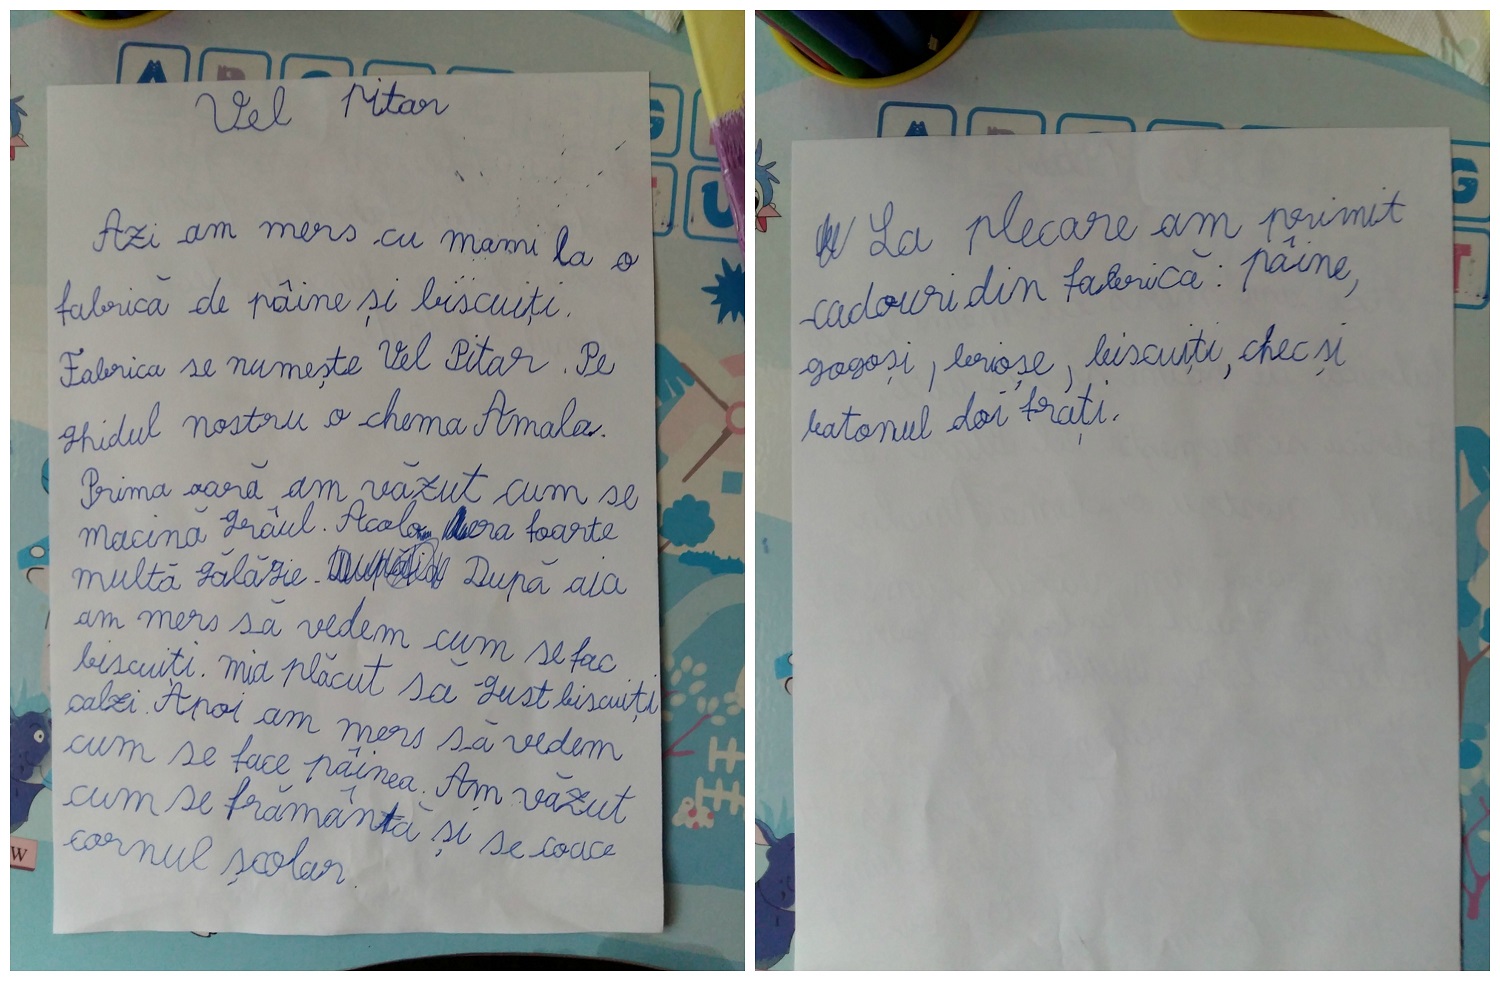 Vel Pitar
Azi am mers cu mami la o
fabrică de pâine și biscuiți.
Fabrica se numește Vel Pitar. Pe
ghidul nostru o chema Amala.
Prima oară am văzut cum se
macină grâul. Acolo era foarte
multă gălăgie. După aia
am mers să vedem cum se fac
biscuiți. mia plăcut să gust biscuiți
calzi. Apoi am mers să vedem
cum se face pâinea. Am văzut
cum se frământă și se coace
cornul școlar.
La plecare am primit
cadouri din fabrică: pâine,
gogoși, brioșe, biscuiți, chec și
batonul doi frați.